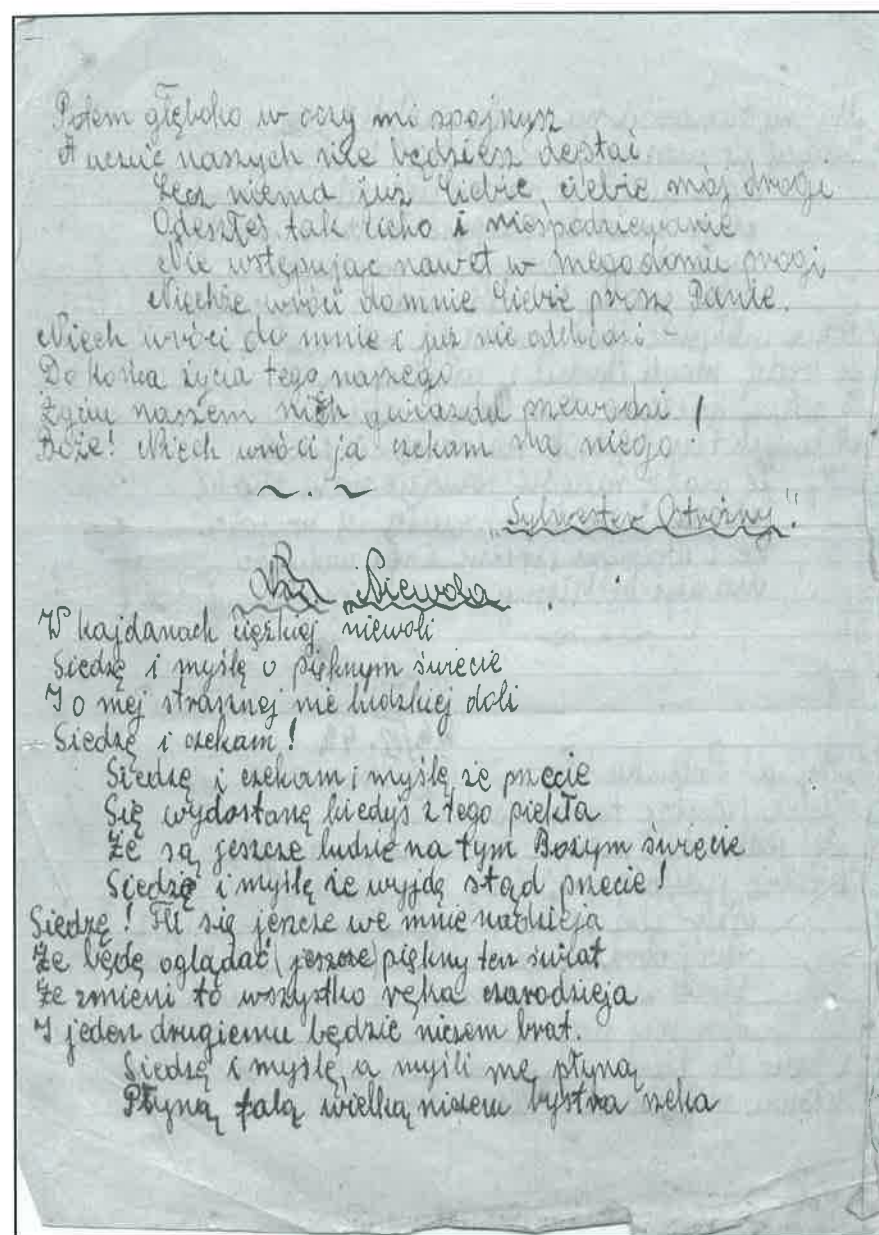 Potem głęboko w oczy mi spojrzysz
A uczuć naszych nie będziesz deptał
Lecz niema już Ciebie, ciebie mój drogi
Odeszłeś tak cicho i niespodziewanie
Nie wstępując nawet w mego domu progi
Niechże wróci do mnie Ciebie proszę Panie.
Niech wróci do mnie i już nie odchodzi -
Do końca życia tego naszego
Życiu naszem niech gwiazda przewodzi!
Boże! Niech wróci ja czekam na niego!
~ . ~
„Sylwester Ostrożny".
Niewola
W kajdanach ciężkiej niewoli
Siedzę i myślę o pięknym świecie
I o mej strasznej nie ludzkiej doli
Siedzę i czekam!
Siedzę i czekam i myślę że przecie
Się wydostanę kiedyś z tego piekła
Że są jeszcze ludzie na tym Bożym świecie
Siedzę i myślę że wyjdę stąd przecie!
Siedzę! Tli się jeszcze we mnie nadzieja
Że będę oglądać (jeszcze) piękny ten świat
Że zmieni to wszystko ręka czarodzieja
I jeden drugiemu będzie niczem brat.
Siedzę i myślę, a myśli me płyną
Płyną falą wielką niczem bystra rzeka